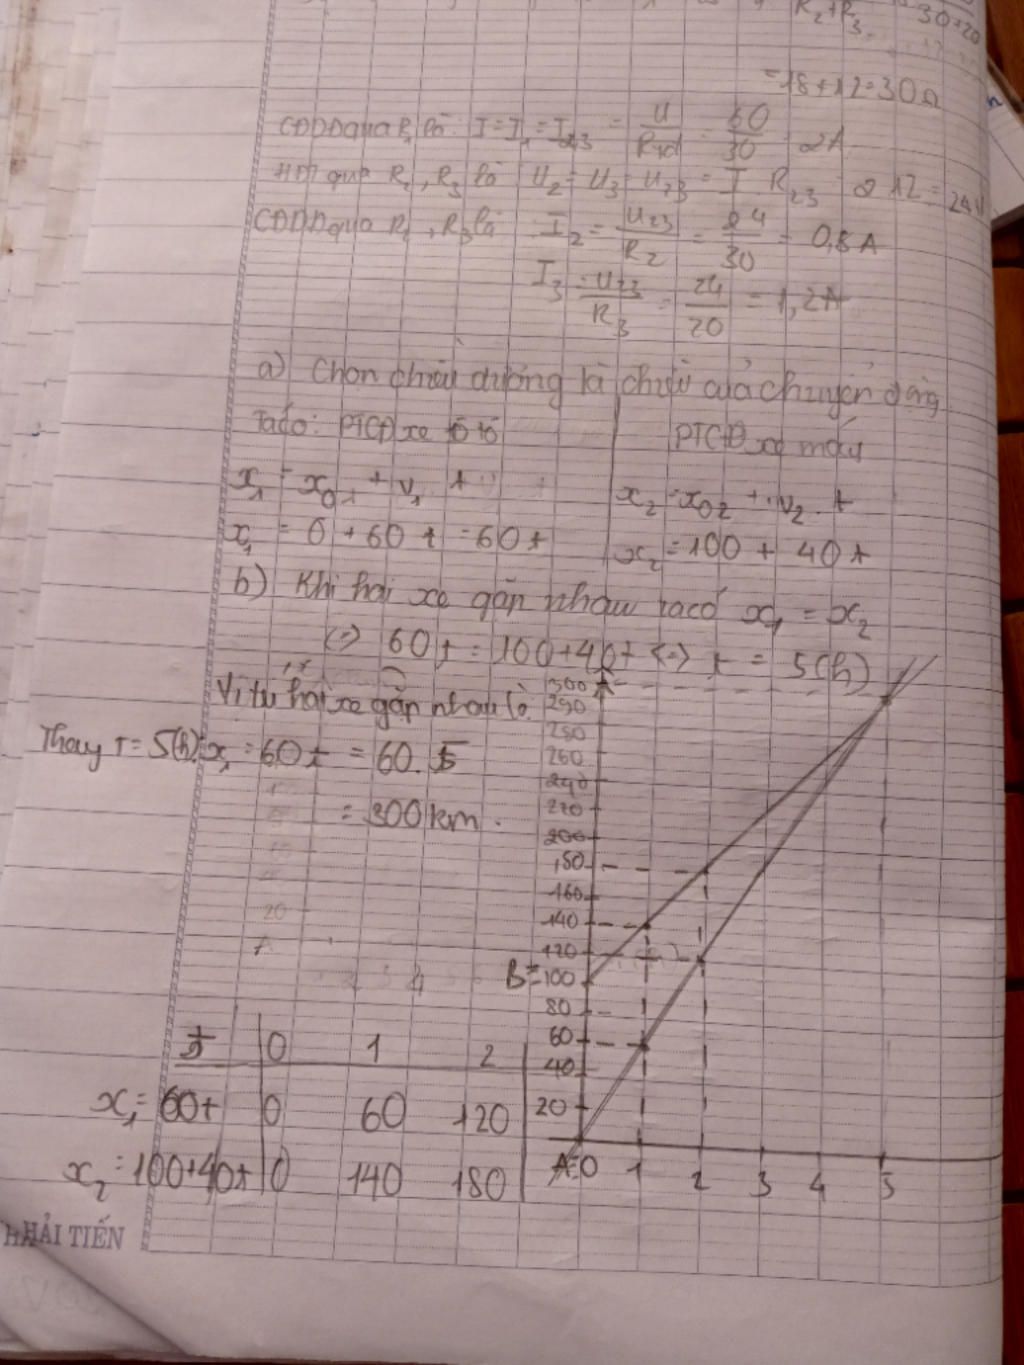 R₂+R₃ 30+20
= 18+12=30Ω
CĐDĐ qua R₁ là I=I₁=I₂₃ = U/Rtđ = 60/30 = 2A
HĐT qua R₂, R₃ là U₂=U₃=U₂₃ = I R₂₃ = 2 12 = 24V
CĐDĐ qua R₂, R₃ là I₂ = U₂₃/R₂ = 24/30 = 0,8A
I₃ = U₂₃/R₃ = 24/20 = 1,2A
a) Chọn chiều dương là chiều của chuyển động
Ta có: PTCĐ xe ô tô PTCĐ xe máy
x₁ = x₀₁ + v₁ t x₂ = x₀₂ + v₂. t
x₁ = 0 + 60 t = 60t x₂ = 100 + 40t
b) Khi hai xe gặp nhau ta có x₁ = x₂
<=> 60t = 100+40t <=> t = 5(h)
Vị trí hai xe gặp nhau là
Thay t = 5(h) x₁ = 60t = 60.5
= 300 km.
300
290
280
260
240
220
200
180
160
140
120
B≡100
80
60
40
20
A≡0 1 2 3 4 5
t 0 1 2
x₁= 60t 0 60 120
x₂ = 100+40t 0 140 180
HẢI TIẾN